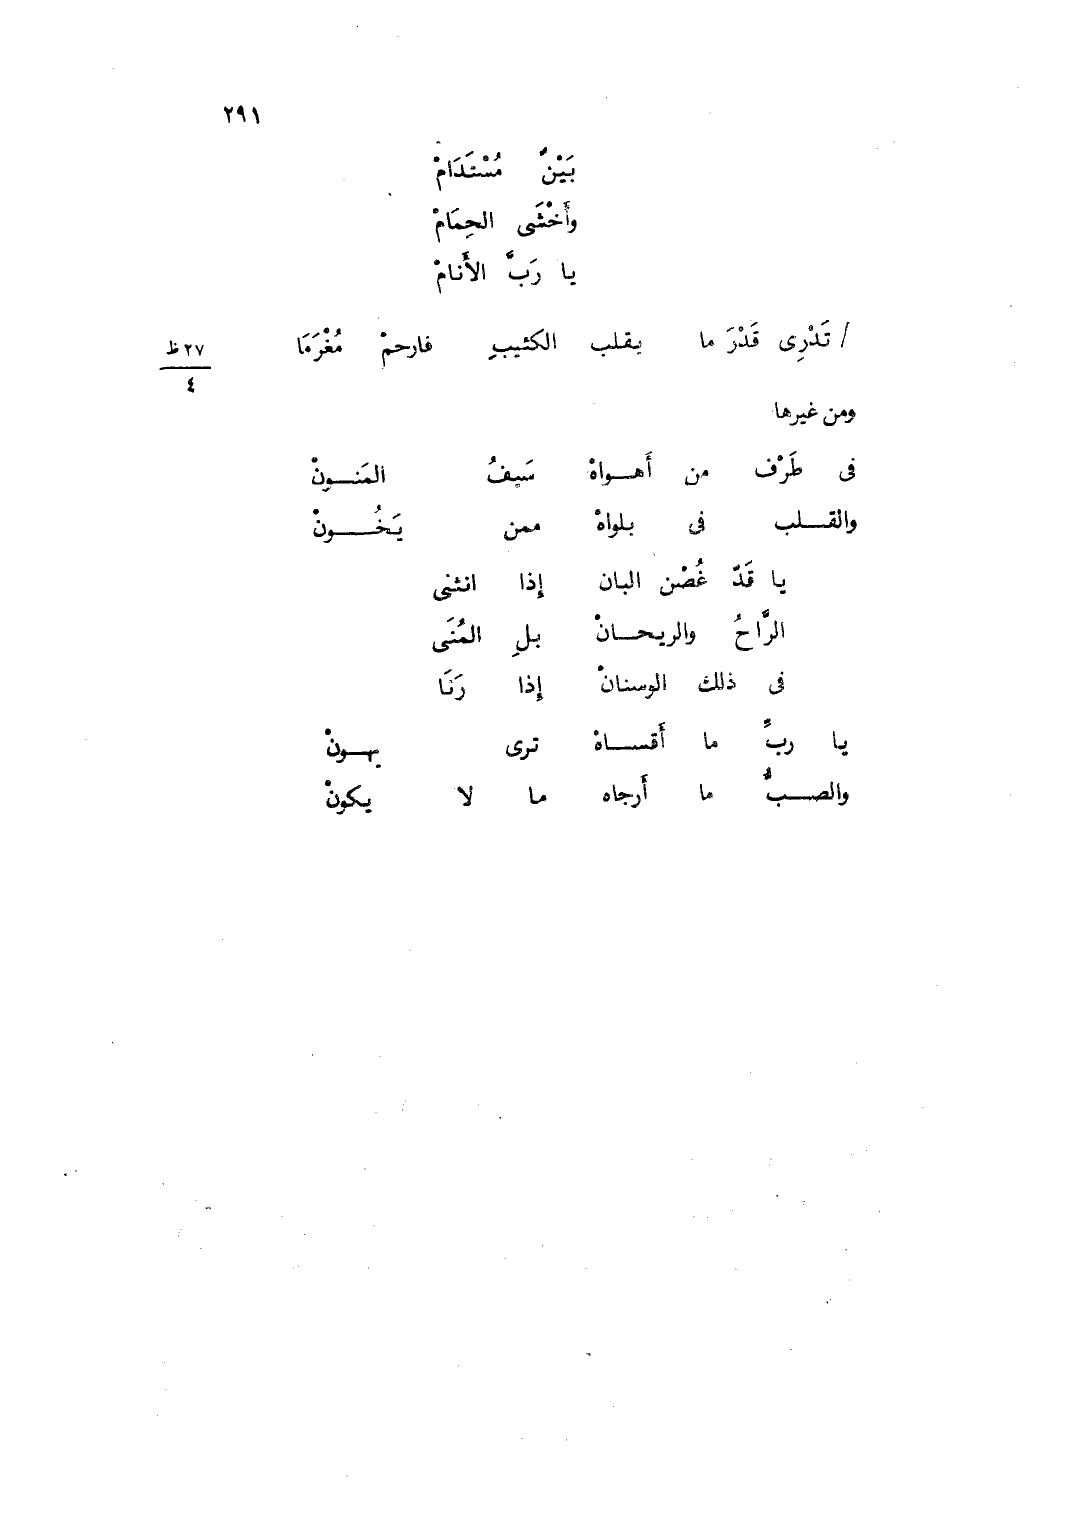 ٢٩١
بَيْنٌ مُسْتَدَامْ
وأَخْشَى الحِمَامْ
يا رَبَّ الأَنامْ
/ تَدْرِى قَدْرَ ما بقلب الكئيبِ فارحمْ مُغْرَمَا
٢٧ ظ
٤
ومن غيرها
فى طَرْف من أَهـواهْ سَيفُ المَنـونْ
والقـلب فى بلواهْ ممن يَخُـونْ
يا قَدّ غُصْن البان إذا انثنى
الرَّاحُ والريحـانْ بلِ المُنَى
فى ذلك الوسنانْ إذا رَنَا
يا ربِّ ما أَقسـاهْ ترى يهـونْ
والصـبُّ ما أَرجاه ما لا يكونْ